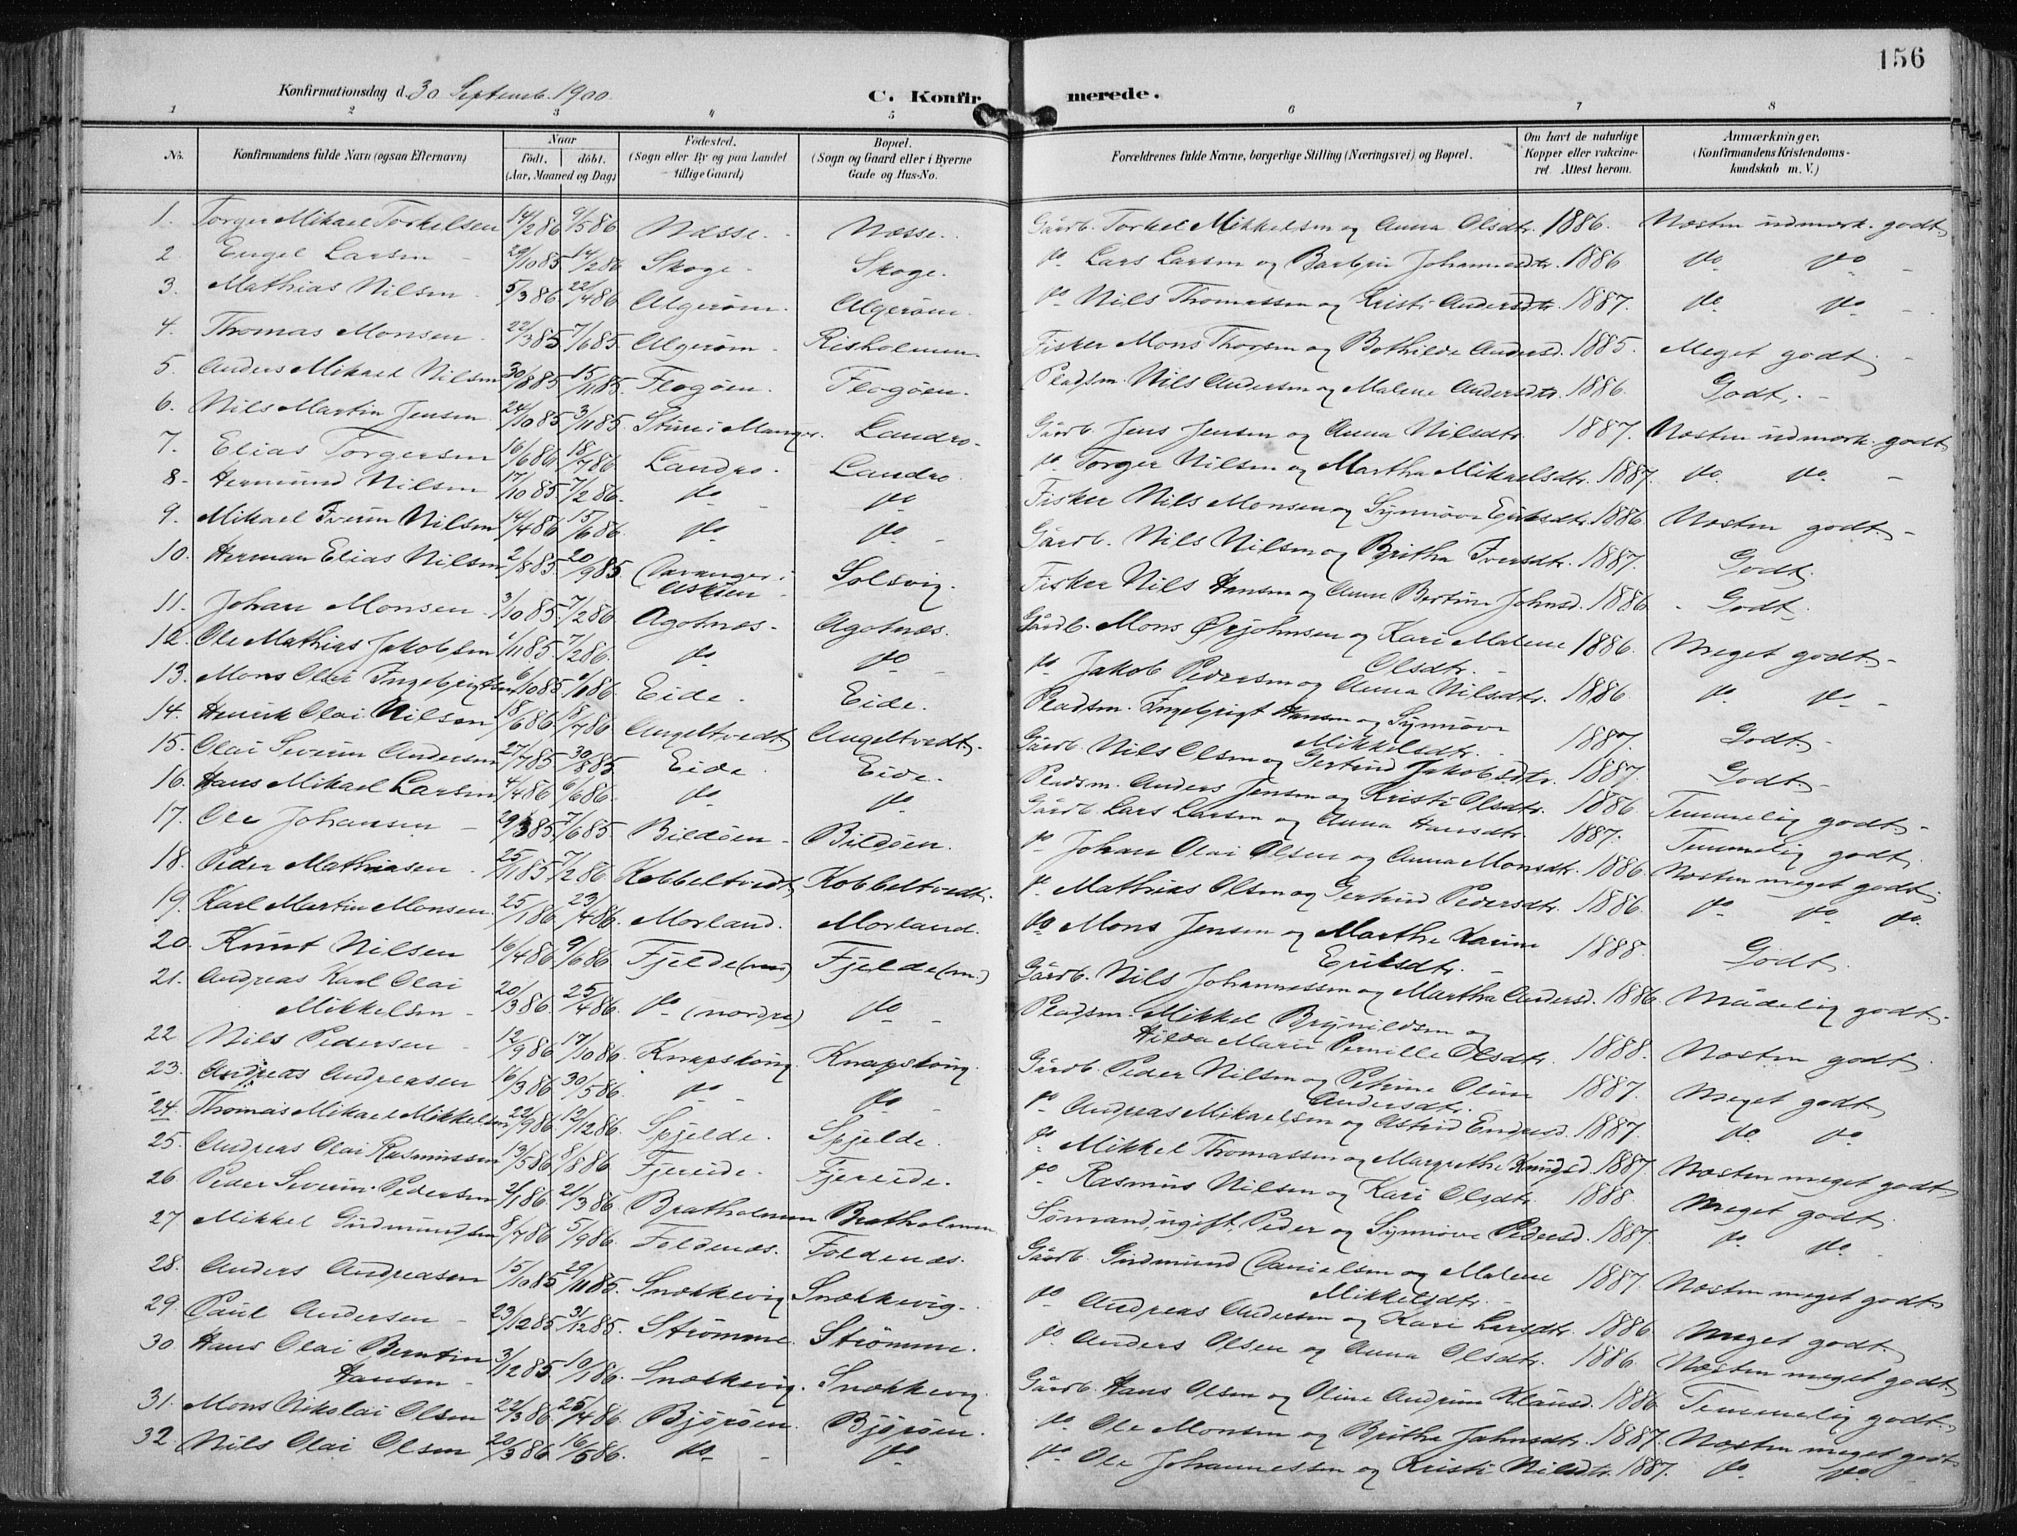 156
Konfirmationsdag d. 30 Septemb. 1900.
C. Konfirmerede.
1 2 3 4 5 6 7 8
No. Konfirmandens fulde Navn (ogsaa Efternavn) Naar født, døbt. (Aar, Maaned og Dag) Fødested. (Sogn eller By og paa Landet tillige Gaard) Bopæl. (Sogn og Gaard eller i Byerne Gade og Hus-No. Forældrenes fulde Navne, borgerlige Stilling (Næringsvei) og Bopæl. Om havt de naturlige Kopper eller vakcineret. Attest herom. Anmærkninger. (Konfirmandens Kristendomskundskab m. V.)
1. Torger Mikael Torkelsen 14/2 86 9/5 86 Næsse. Næsse. Gårdb. Torkel Mikkelsen og Anna Olsdtr. 1886. Næsten udmærk. godt
2 Engel Larsen 29/10 85 14/2 86 Skoge. Skoge. do Lars Larsen og Barbru Johannesdtr. 1886 do do
3. Mathias Nilsen 5/3 86 22/4 86 Algerøen. Algerøen. do Nils Thomassen og Kristi Andersdtr. 1887. do do
4. Thomas Monsen 22/3 85 7/6 85 Algerøen Risholmen Fisker Mons Thorsen og Bothilde Andersd. 1885. Meget godt
5. Anders Mikael Nilsen 30/8 85 15/11 85. Flogøen. Flogøen. Pladsm. Nils Andersen og Malene Andersdtr. 1886. Godt.
6. Nils Martin Jensen 24/10 85 3/11 85 Sture i Manger. Landro Gårdb. Jens Jensen og Anna Nilsdtr. 1887. Næsten udmærk. godt
7. Elias Torgersen 16/6 86 18/7 86 Landro. Landro do Torger Nilsen og Martha Mikaelsdtr. 1887. do do
8. Hermund Nilsen 17/10 85 7/2 86. do do Fisker Nils Monsen og Synnøve Eriksdtr. 1886 Næsten godt
9. Mikael Iverin Nilsen 14/4 86 15/6 86. do do Gårdb. Nils Nilsen og Britha Iversdtr. 1887. Godt.
10. Herman Elias Nilsen 2/8 85. 20/9 85 Davanger i Askøen Solsvig. Fisker Nils Hansen og Anne Bertine Johnsd. 1886 Godt.
11. Johan Monsen 3/10 85. 7/2 86 Agotnæs. Agotnæs. Gårdb. Mons Ørjohnsen og Kari Malene Olsdtr. 1886. Meget godt
12. Ole Mathias Jakobsen 1/11 85 7/2 86. do do do Jakob Pedersen og Anna Nilsdtr. 1886 do do
13. Mons Olai Ingebrigtsen 6/10 85 6/10 86. Eide. Eide. Pladsm. Ingebrigt Hansen og Synnøve Mikkelsdtr. 1887. Godt.
14. Henrik Olai Nilsen 18/6 86 18/7 86 Angeltvedt Angeltvedt. Gårdb. Nils Olsen og Gertrud Jakobsdtr. 1887. Godt.
15. Olai Severin Andersen 27/7 85 30/8 85 Eide. Eide. Pladsm. Anders Jensen og Kristi Olsdtr. 1886 Temmelig godt
16. Hans Mikael Larsen 4/4 86 6/6 86. do do Gårdb. Lars Larsen og Anna Hansdtr. 1887. Temmelig godt
17. Ole Johansen 29/3 85. 7/6 85 Bildøen. Bildøen. do Johan Olai Olsen og Anna Monsdtr. 1886. Næsten meget godt
18. Peder Mathiasen 25/11 85 7/2 86 Kobbeltvedt Kobbeltvedt. do Mathias Olsen og Gertrud Pedersdtr. 1886. do do do
19. Karl Martin Monsen 25/1 86 23/4 86. Morland. Morland. do Mons Jensen og Marthe Karine Eriksdtr. 1888. Godt
20. Knut Nilsen 16/4 86 9/6 86. Fjelde (ned) Fjelde (m.) Gårdb. Nils Johannessen og Martha Andersd. 1886. Mådelig godt.
21. Andreas Karl Olai Mikkelsen 20/3 86. 25/4 86. do (nordre) do Pladsm. Mikkel Brynildsen og Hilda Marie Pernille Olsdtr. 1888. Næsten godt
22 Nils Pedersen 12/9 86 17/10 86. Knapskoug Knapskoug. Gårdb. Peder Nilsen og Petrine Oline Andersdtr. 1887. Meget godt
23. Andreas Andreasen 16/3 86 30/5 86. do do do Andreas Mikaelsen og Astrid Endresd. 1887. do do
24. Thomas Mikael Mikkelsen 22/9 86 12/12 86. Spjelde. Spjelde. do Mikkel Thomassen og Margrethe Knudsd. 1887. Næsten meget godt
25. Andreas Olai Rasmussen 13/5 86 8/8 86 Fjereide. Fjereide. do Rasmus Nilsen og Kari Olsdtr. 1888 Meget godt
26. Peder Severin Pedersen 2/1 86. 21/3 86. Bratholmen Bratholmen Sømand, ugift, Peder og Synnøve Pedersd. 1887. do do
27 Mikkel Gudmundsen 8/7 86 5/9 86. Foldenæs. Foldenæs. Gårdb. Gudmund Danielsen og Malene Mikkelsdtr. 1887. Næsten meget godt
28. Anders Andreasen 15/10 85 29/11 85. Snekkevig Snekkevig. do Andreas Andersen og Kari Larsdtr. 1886. Meget godt
29. Paul Andersen 23/12 85 31/12 85. Strømme. Strømme. do Anders Olsen og Anna Olsdtr. 1886. Næsten meget godt
30 Hans Olai Berntin Hansen 3/12 85. 10/1 86. Snekkevig. Snekkevig Gårdb. Hans Olsen og Oline Andrine Klausd. 1886 Temmelig godt
31. Mons Nikolai Olsen 22/3 86 25/4 86. Bjørøen. Bjørøen. do Ole Monsen og Britha Johnsdtr. 1887. Næsten meget godt
32. Nils Olai Olsen 20/3 86 16/5 86. do do do Ole Johannessen og Kristi Nilsdtr. 1887. do do